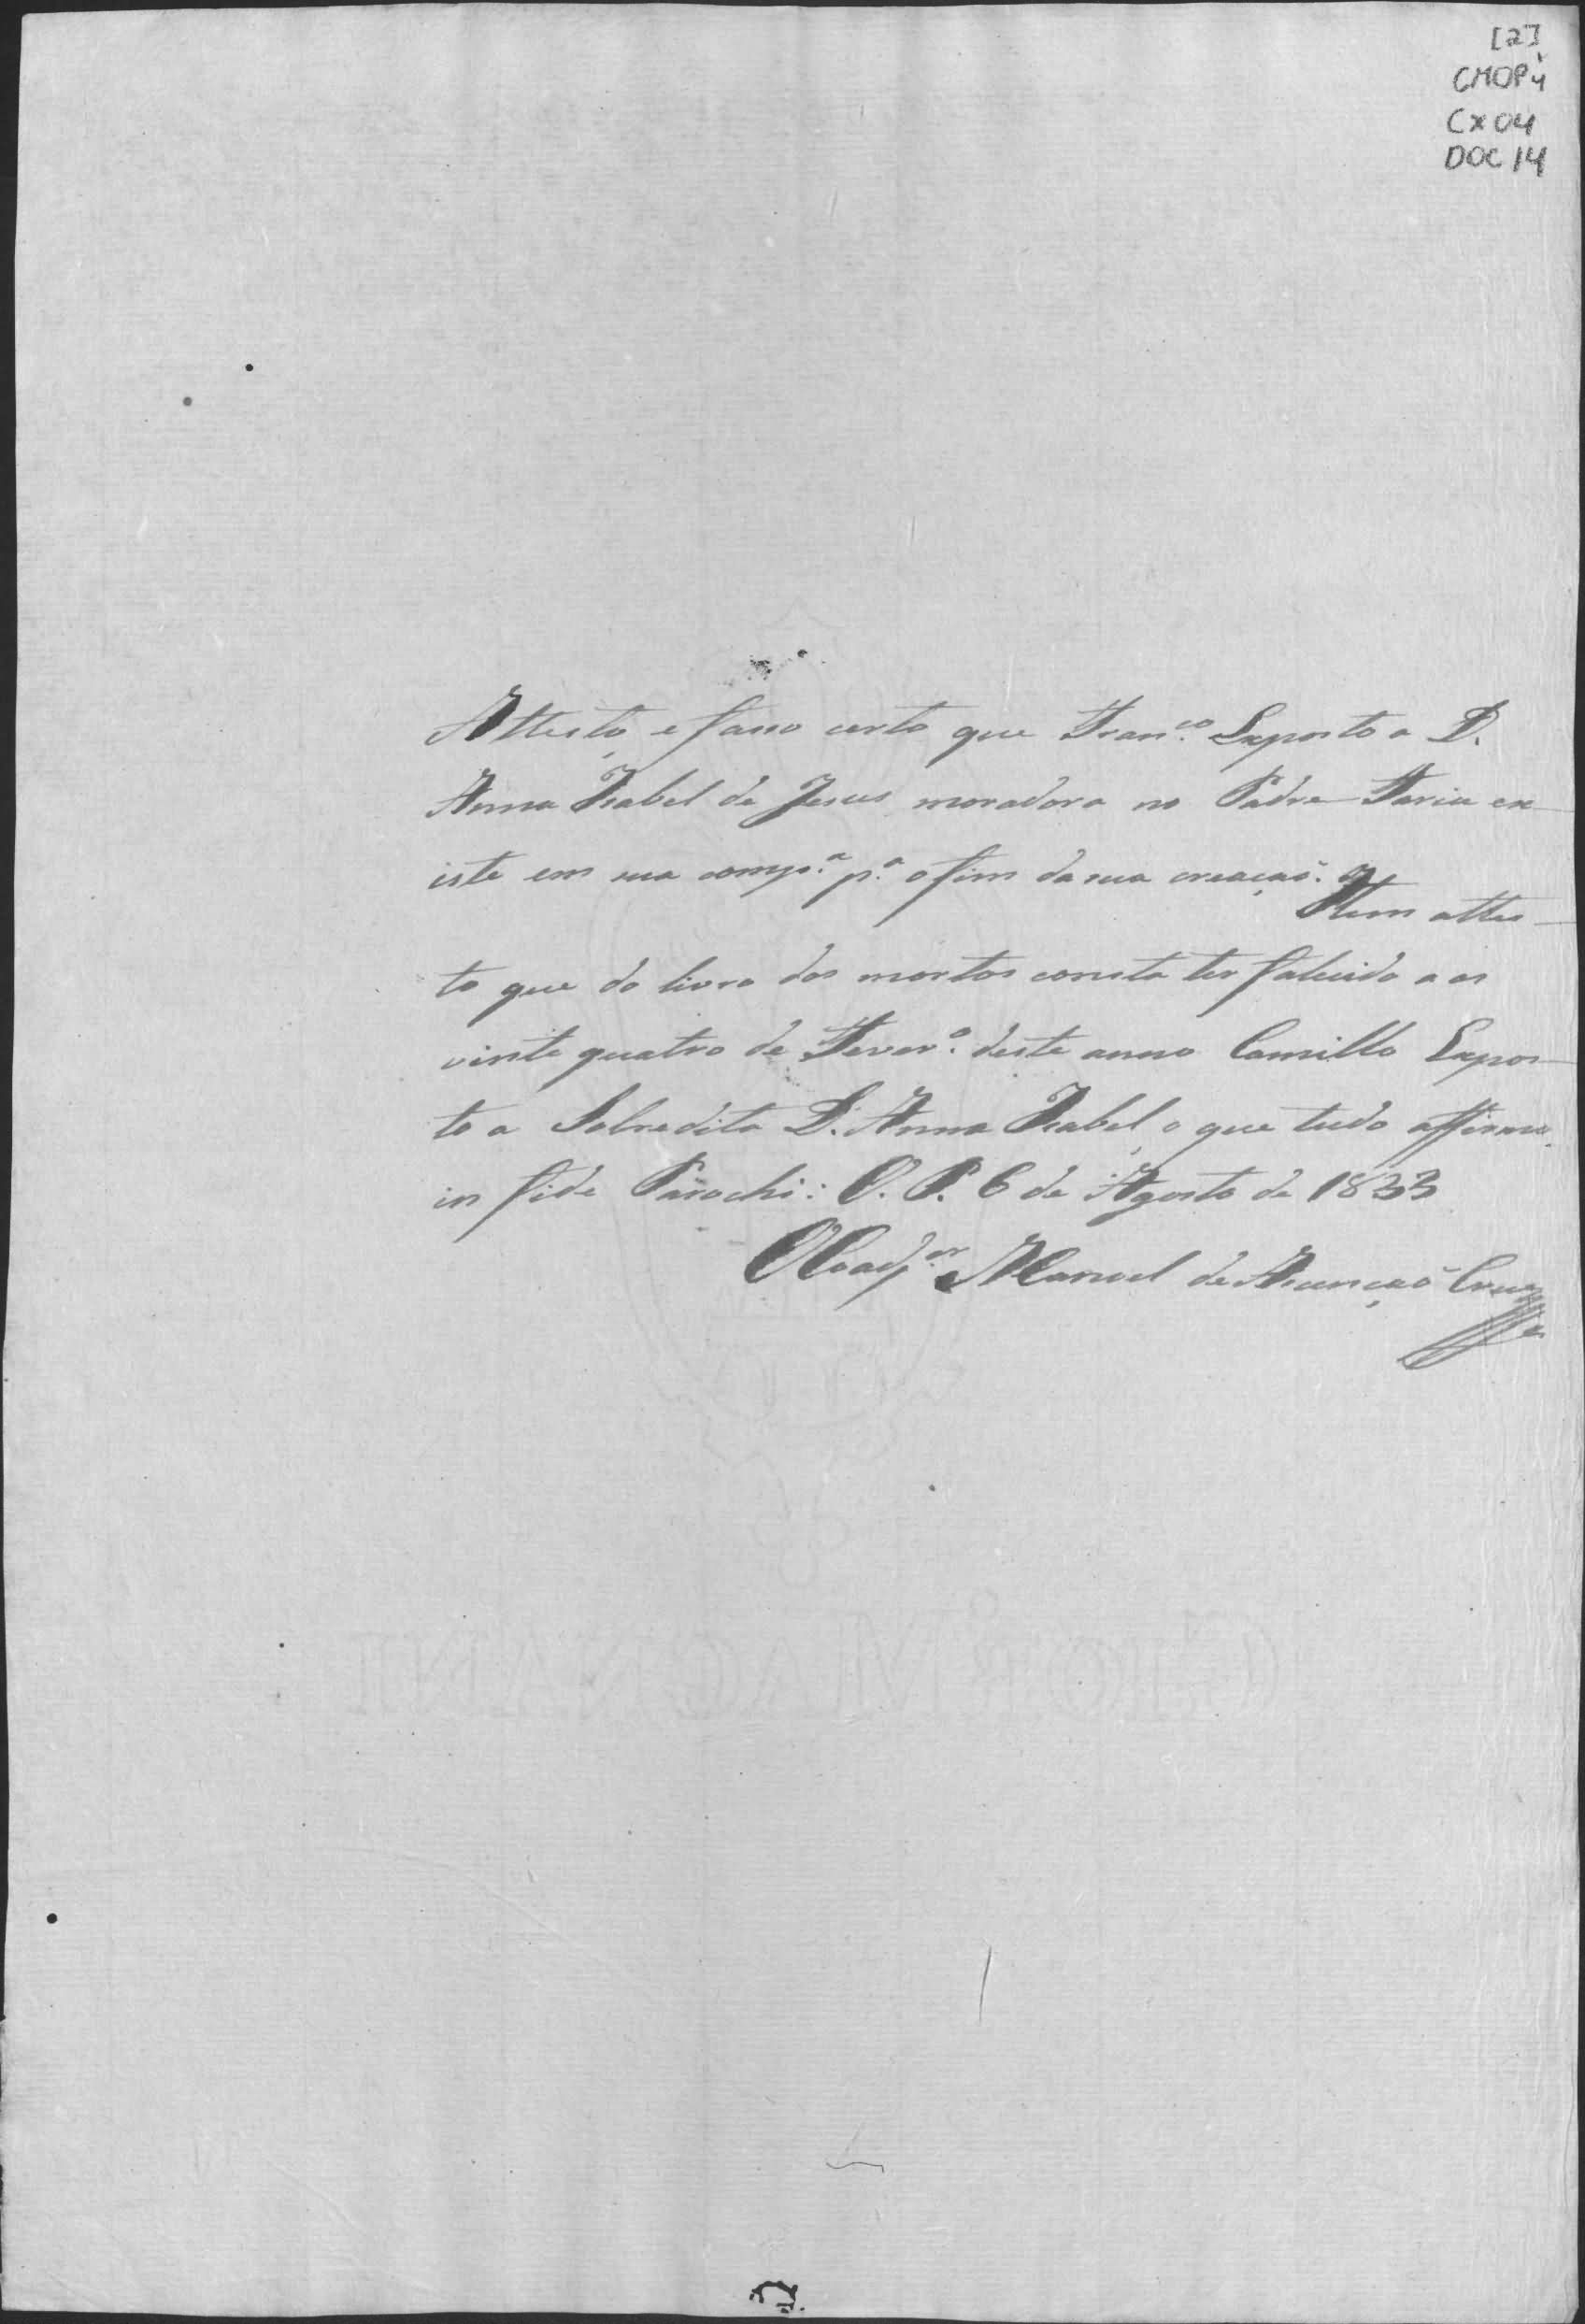 [2]
CMOP 4
CX 04
DOC 14
Attesto, e fasso certo que Fran.co Exposto a D.
Anna Izabel de Jesus moradora no Padre Faria ex
iste em sua comp.a p.a o fim da sua creaçaõ.
Item attes
to que do livro dos mortos consta ter falecido a os
vinte quatro de Fever.o deste anno Camillo Expos
to a Sobredita D. Anna Izabel, o que tudo affirmo
in fide Parochi: O. P. 6 de Agosto de 1833
O Coadj.or Manoel de Asunçaõ Cruz
GIOR MAGNANI